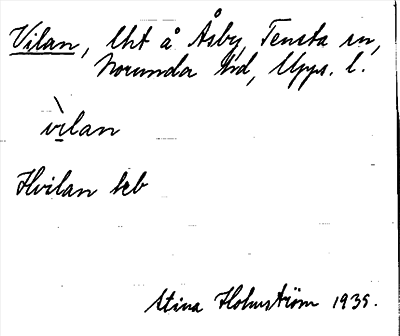 Vilan, lht å Åsby, Tensta sn,
Norunda hd, Upps. l.
vìlan
Hvilan kb
Stina Holmström 1935.